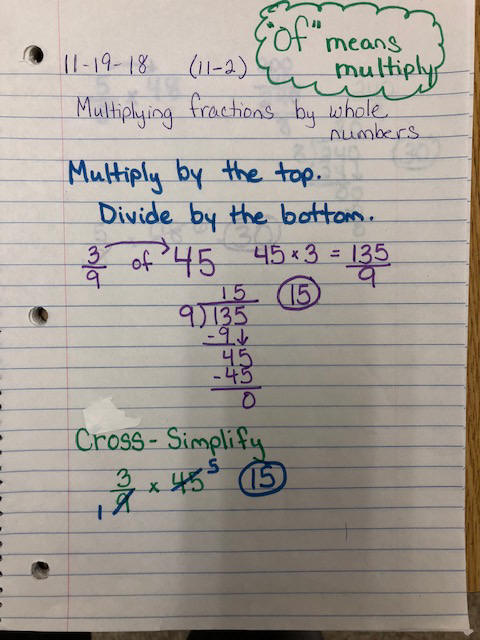 "Of" means
multiply
11-19-18 (11-2)
Multiplying fractions by whole
numbers
Multiply by the top.
Divide by the bottom.
3/9 of 45 45 × 3 = 135/9
15 15
9)135
-9↓
45
-45
0
Cross-Simplify
3/9 × 45 5 15
1